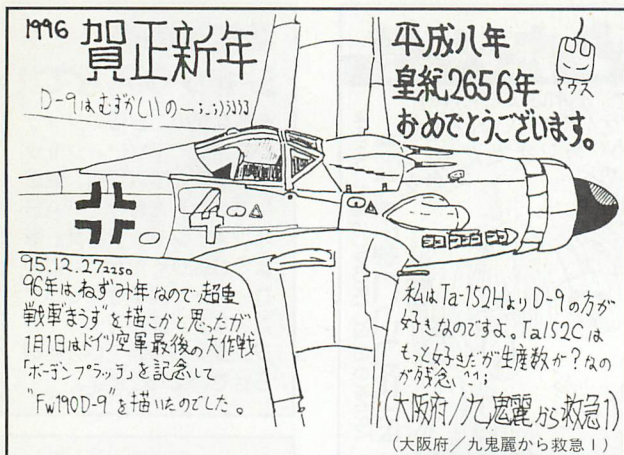 1996 賀正新年
D-9はむずかしいの〜
平成八年
皇紀2656年
おめでとうございます。
マウス
4
95.12.27 2250
96年はねずみ年なので超重
戦車まうすを描こかと思ったが
1月1日はドイツ空軍最後の大作戦
「ボーデンプラッテ」を記念して
"Fw190D-9"を描いたのでした。
私はTa-152HよりD-9の方が
好きなのですよ。Ta152Cは
もっと好きだが生産数が?なの
が残念、
(大阪府/九鬼麗から救急1)
(大阪府/九鬼麗から救急1)